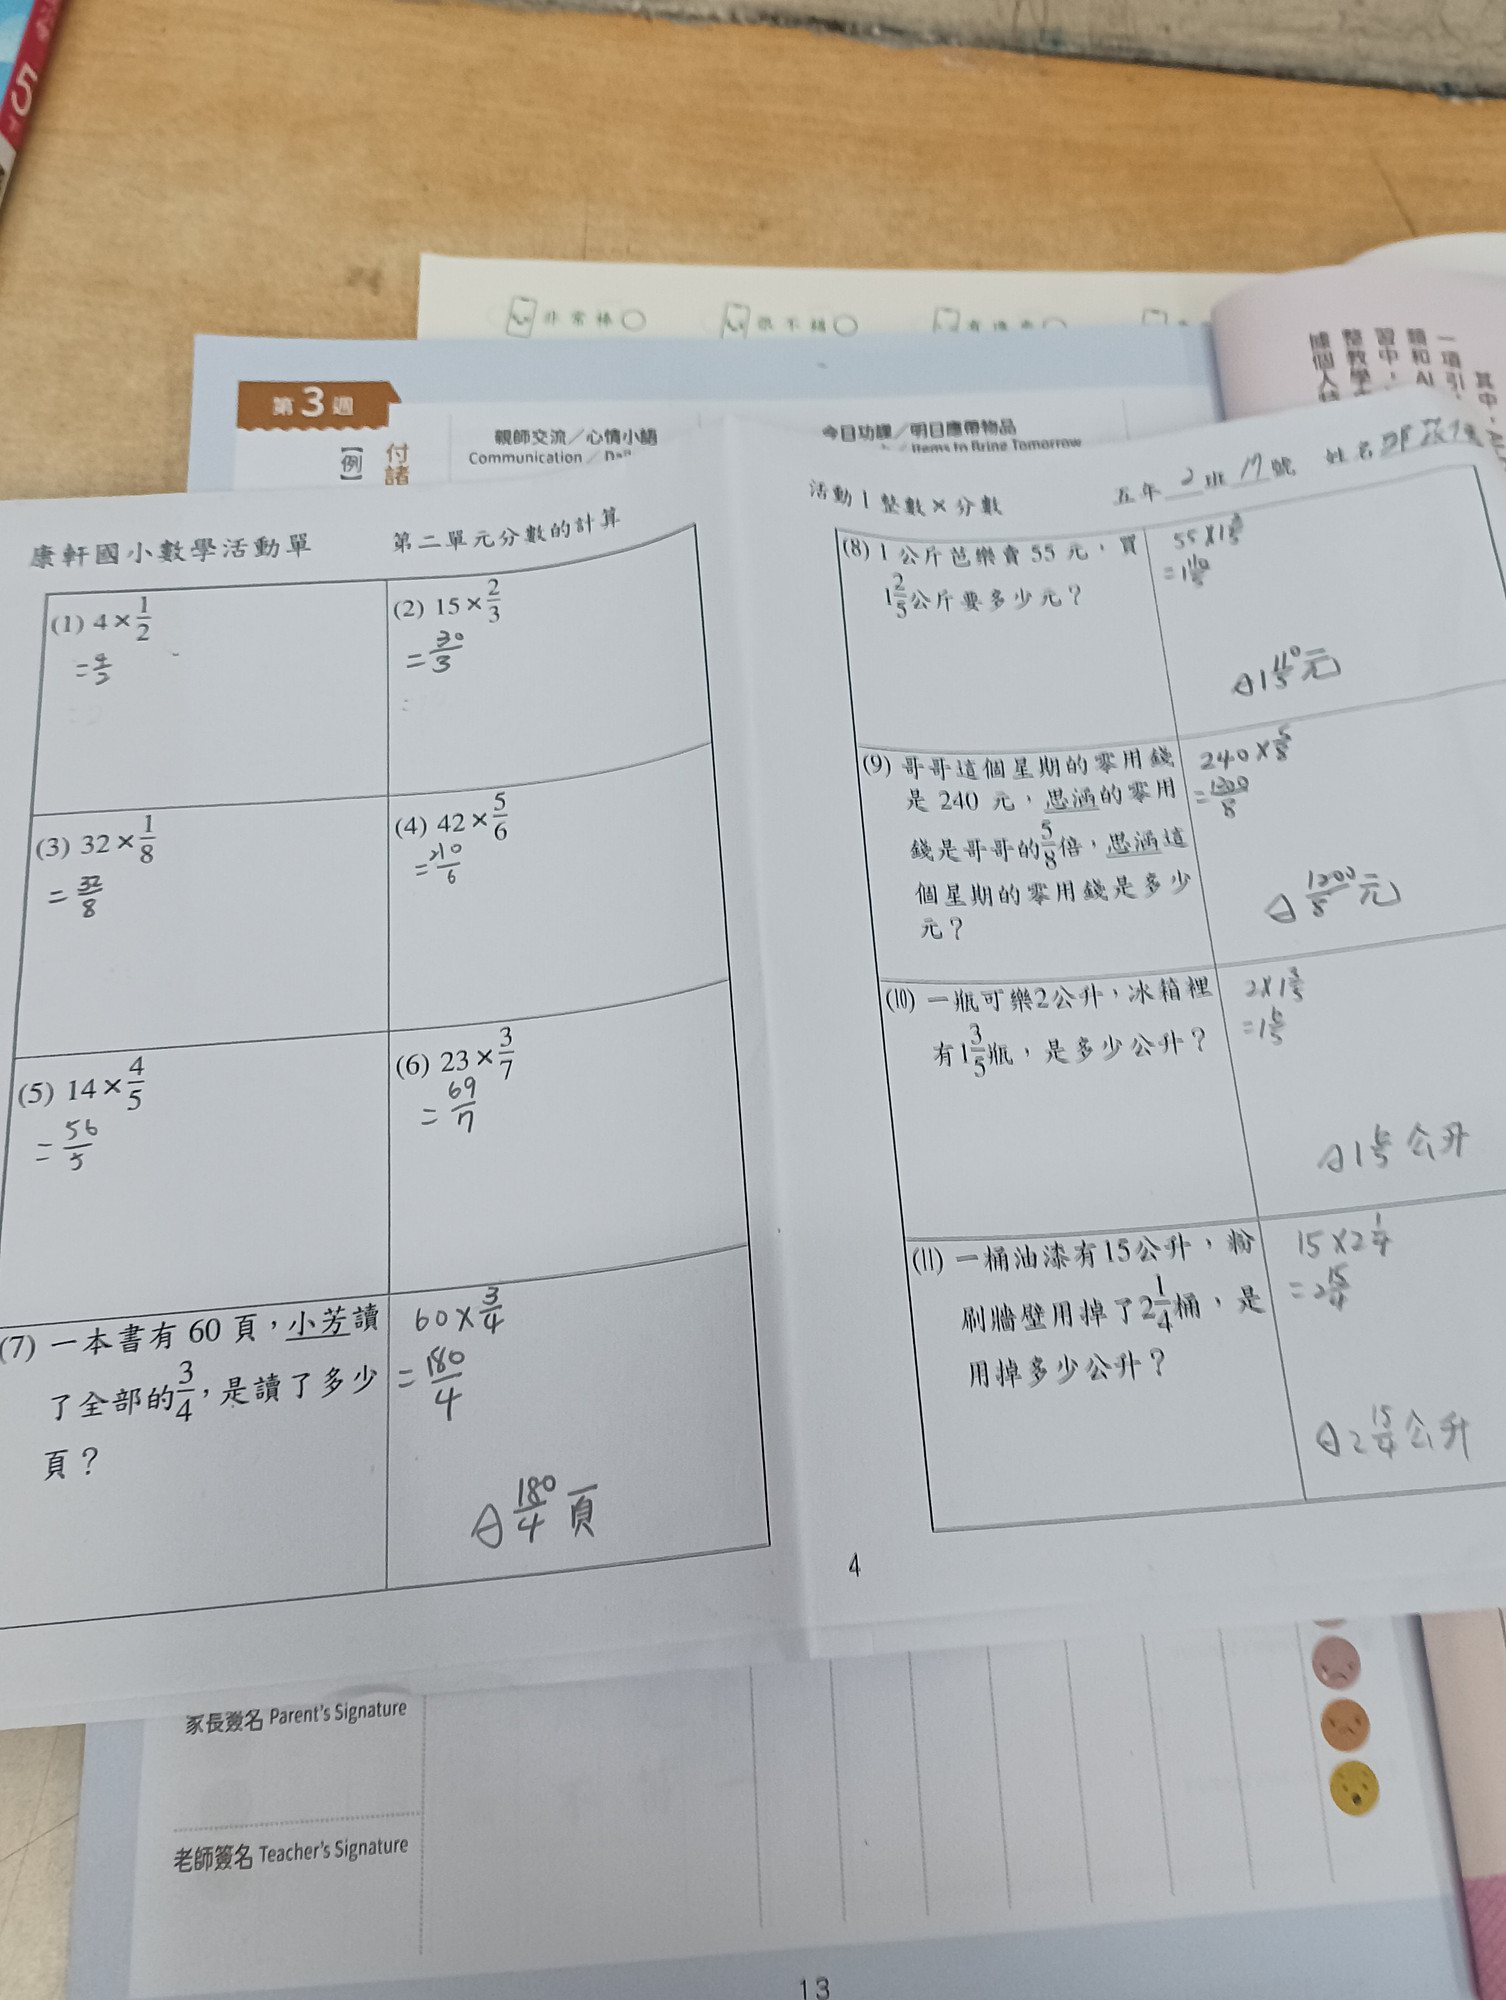 5
非常棒
很不錯
第3週
【例】
付諸
親師交流／心情小語
Communication
今日功課／明日應帶物品
Items to Bring Tomorrow
一項引
類和AI
習中，
整教學
據個人
其中，
康軒國小數學活動單 第二單元分數的計算
(1) 4×1/2
=4/2
(2) 15×2/3
=30/3
(3) 32×1/8
=32/8
(4) 42×5/6
=210/6
(5) 14×4/5
=56/5
(6) 23×3/7
=69/7
(7) 一本書有 60 頁，小芳讀
了全部的3/4，是讀了多少
頁？
60×3/4
=180/4
A 180/4 頁
活動1 整數×分數
五年 2 班 17 號 姓名
(8) 1 公斤芭樂賣 55 元，買
1 2/5公斤要多少元？
55×1 2/5
=1 110/5
A 1 110/5 元
(9) 哥哥這個星期的零用錢
是 240 元，思涵的零用
錢是哥哥的5/8倍，思涵這
個星期的零用錢是多少
元？
240×5/8
=1200/8
A 1200/8 元
(10) 一瓶可樂2公升，冰箱裡
有1 3/5瓶，是多少公升？
2×1 3/5
=1 6/5
A 1 6/5 公升
(11) 一桶油漆有15公升，粉
刷牆壁用掉了2 1/4桶，是
用掉多少公升？
15×2 1/4
=2 15/4
A 2 15/4 公升
4
家長簽名 Parent's Signature
老師簽名 Teacher's Signature
13